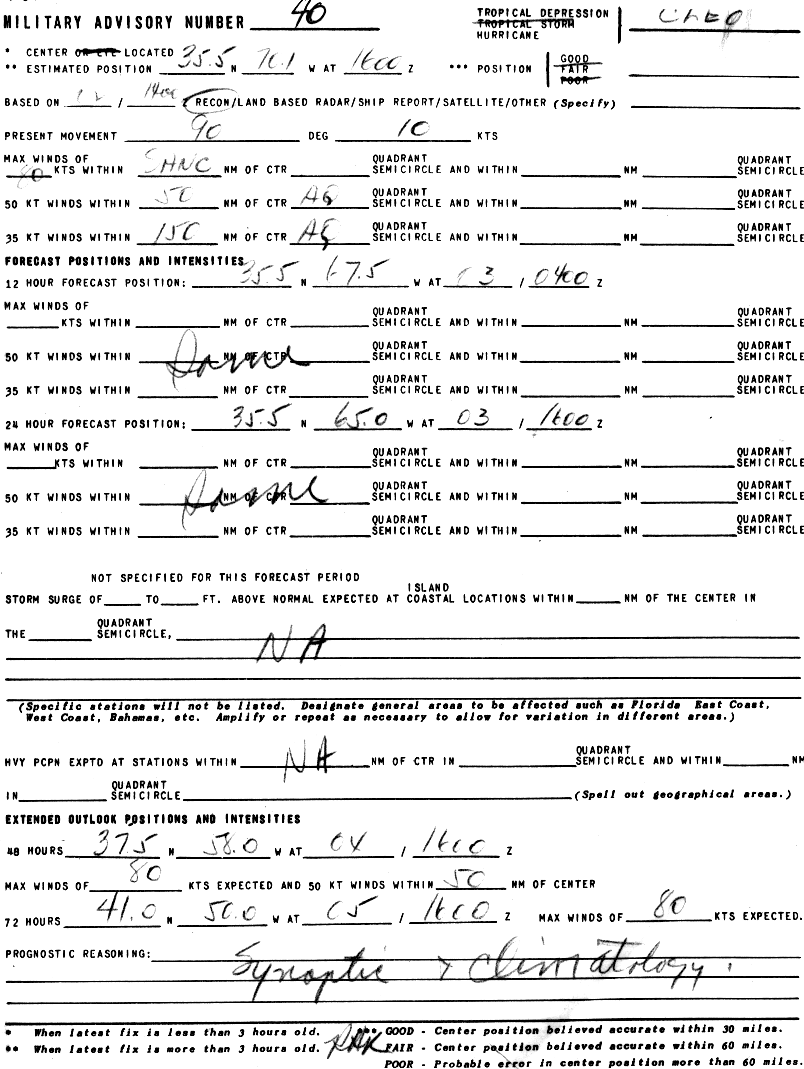 MILITARY ADVISORY NUMBER 40
TROPICAL DEPRESSION
TROPICAL STORM
HURRICANE
* CENTER OR EYE LOCATED
** ESTIMATED POSITION 35.5 N 70.1 W AT 1600 Z *** POSITION GOOD FAIR POOR
BASED ON / 1400 Z RECON/LAND BASED RADAR/SHIP REPORT/SATELLITE/OTHER (Specify)
PRESENT MOVEMENT 90 DEG 10 KTS
MAX WINDS OF QUADRANT QUADRANT
80 KTS WITHIN NM OF CTR SEMICIRCLE AND WITHIN NM SEMICIRCLE
QUADRANT QUADRANT
50 KT WINDS WITHIN 50 NM OF CTR AQ SEMICIRCLE AND WITHIN NM SEMICIRCLE
QUADRANT QUADRANT
35 KT WINDS WITHIN 150 NM OF CTR AQ SEMICIRCLE AND WITHIN NM SEMICIRCLE
FORECAST POSITIONS AND INTENSITIES
12 HOUR FORECAST POSITION: 35.5 N 67.5 W AT 03 / 0400 Z
MAX WINDS OF QUADRANT QUADRANT
KTS WITHIN NM OF CTR SEMICIRCLE AND WITHIN NM SEMICIRCLE
QUADRANT QUADRANT
50 KT WINDS WITHIN Same NM OF CTR SEMICIRCLE AND WITHIN NM SEMICIRCLE
QUADRANT QUADRANT
35 KT WINDS WITHIN NM OF CTR SEMICIRCLE AND WITHIN NM SEMICIRCLE
24 HOUR FORECAST POSITION: 35.5 N 65.0 W AT 03 / 1600 Z
MAX WINDS OF QUADRANT QUADRANT
KTS WITHIN NM OF CTR SEMICIRCLE AND WITHIN NM SEMICIRCLE
QUADRANT QUADRANT
50 KT WINDS WITHIN Same NM OF CTR SEMICIRCLE AND WITHIN NM SEMICIRCLE
QUADRANT QUADRANT
35 KT WINDS WITHIN NM OF CTR SEMICIRCLE AND WITHIN NM SEMICIRCLE
NOT SPECIFIED FOR THIS FORECAST PERIOD
ISLAND
STORM SURGE OF TO FT. ABOVE NORMAL EXPECTED AT COASTAL LOCATIONS WITHIN NM OF THE CENTER IN
QUADRANT
THE SEMICIRCLE,
NA
(Specific stations will not be listed. Designate general areas to be affected such as Florida East Coast,
West Coast, Bahamas, etc. Amplify or repeat as necessary to allow for variation in different areas.)
QUADRANT
HVY PCPN EXPTD AT STATIONS WITHIN NA NM OF CTR IN SEMICIRCLE AND WITHIN NM
QUADRANT
IN SEMICIRCLE (Spell out geographical areas.)
EXTENDED OUTLOOK POSITIONS AND INTENSITIES
48 HOURS 37.5 N 58.0 W AT 04 / 1600 Z
MAX WINDS OF 80 KTS EXPECTED AND 50 KT WINDS WITHIN 50 NM OF CENTER
72 HOURS 41.0 N 50.0 W AT 05 / 1600 Z MAX WINDS OF 80 KTS EXPECTED.
PROGNOSTIC REASONING: Synoptic & Climatology.
* When latest fix is less than 3 hours old. *** GOOD - Center position believed accurate within 30 miles.
** When latest fix is more than 3 hours old. FAIR - Center position believed accurate within 60 miles.
POOR - Probable error in center position more than 60 miles.